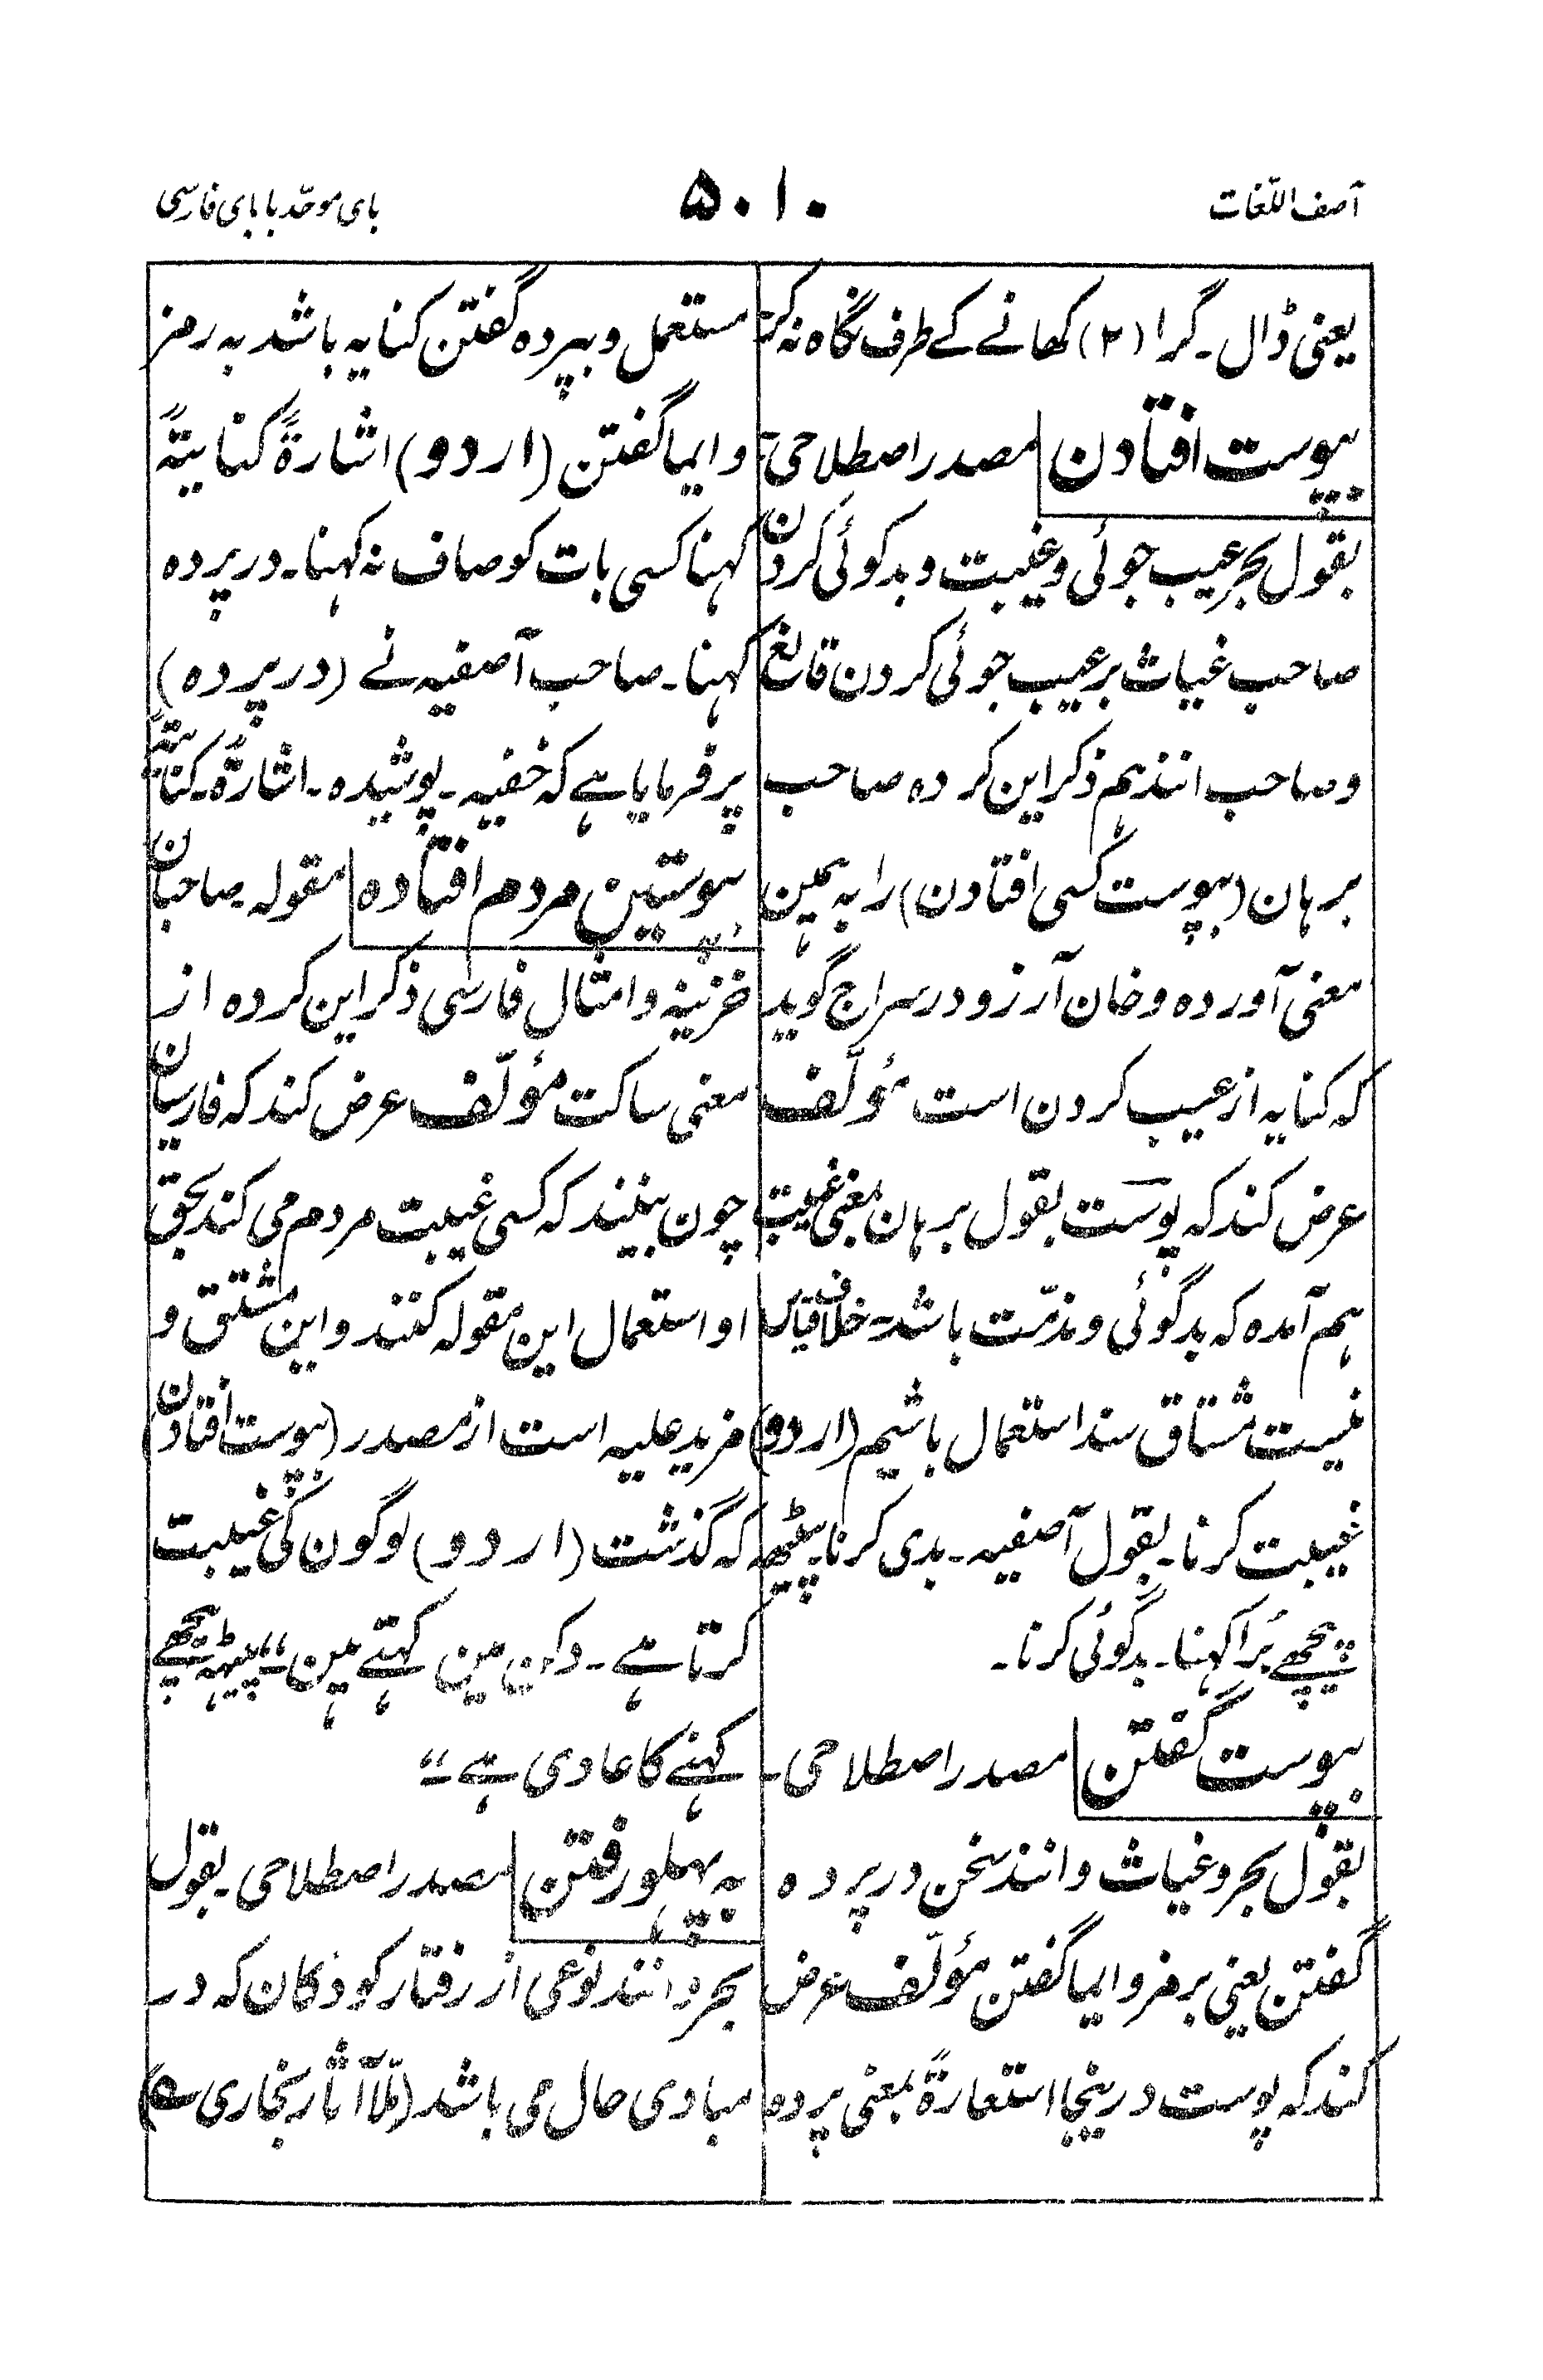 آصف اللّغات
۵۰۱۰
بای موحّد با بای فارسی
یعنی ڈال۔ گرا (۲) کھانے کے طرف نگاہ نہ کر
بپوست افتادن مصدر اصطلاحی۔
بقول بحر عیب جوئی و غیبت و بدگوئی کردن
صاحب غیاث بر عیب جوئی کردن قانع
و صاحب انند ہم ذکر این کردہ صاحب
برہان (بپوست کسی افتادن) را بہ ہمین
معنی آوردہ و خان آرزو در سراج گوید
کہ کنایہ از عیب کردن است مؤلّف
عرض کند کہ پوست بقول برہان بمعنی غیبت
ہم آمدہ کہ بدگوئی و مذمّت باشد۔ خلاف قیاس
نیست مشتاق سند استعمال باشیم (اردو)
غیبت کرنا۔ بقول آصفیہ۔ بدی کرنا۔ پیٹھ
پیچھے بُرا کہنا۔ بدگوئی کرنا۔
بپوست گفتن مصدر اصطلاحی۔
بقول بحر و غیاث و انند سخن در پردہ
گفتن یعنی برمز و ایما گفتن مؤلّف عرض
کند کہ پوست درینجا استعارۃً بمعنی پردہ
مستعمل و بپردہ گفتن کنایہ باشد بہ رمز
و ایما گفتن (اردو) اشارۃً کنایتہً
کہنا کسی بات کو صاف نہ کہنا۔ درپردہ
کہنا۔ صاحب آصفیہ نے (درپردہ)
پر فرمایا ہے کہ خفیہ۔ پوشیدہ۔ اشارۃً۔ کنایتہً
بپوستین مردم افتادہ مقولہ۔ صاحبان
خزینہ و امثال فارسی ذکر این کردہ از
معنی ساکت مؤلّف عرض کند کہ فارسیان
چون بینند کہ کسی غیبت مردم می کند بحق
او استعمال این مقولہ کنند و این مشتق و
مزید علیہ است از مصدر (بپوست افتادن)
کہ گذشت (اردو) لوگون کی غیبت
کرتا ہے۔ دکن مین کہتے ہین "پیٹھ پیچھے
کہنے کا عادی ہے"
بہ پہلو رفتن مصدر اصطلاحی۔ بقول
بحر و انند نوعی از رفتار کودکان کہ در
مبادی حال می باشد (ملّا آثار بخاری ؎)